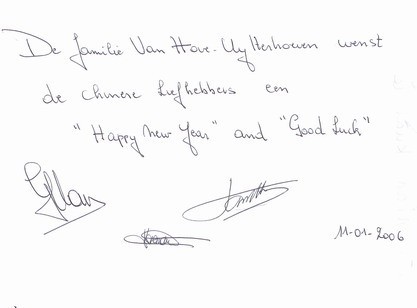 De familie Van Hove-Uytterhoeven wenst
de chinese liefhebbers een
"Happy New Year" and "Good Luck"
11-01-2006